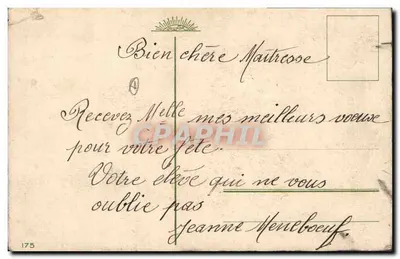 Bien chère Maîtresse
Recevez Melle mes meilleurs voeux
pour votre fête.
Votre elève qui ne vous
oublie pas
Jeanne Meneboeuf.
CPAPHIL
175